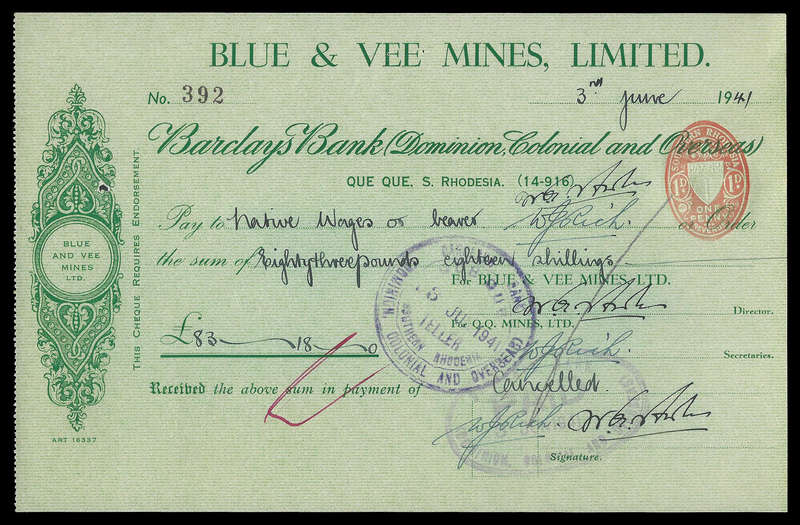 BLUE & VEE MINES, LIMITED.
No. 392
3rd June 1941
Barclays Bank (Dominion, Colonial and Overseas)
QUE QUE, S. RHODESIA. (14-916)
SOUTHERN RHODESIA
1D 1D
ONE PENNY
Pay to Native Wages or bearer W J Rich. or Order
the sum of Eighty three pounds eighteen shillings
For BLUE & VEE MINES LTD.
Director.
For Q.Q. MINES, LTD.
£83 18 0
W J Rich.
Secretaries.
Received the above sum in payment of Cancelled.
W J Rich.
Signature.
THIS CHEQUE REQUIRES ENDORSEMENT.
BLUE
AND VEE
MINES
LTD.
ART 16337
BARCLAYS BANK
DOMINION COLONIAL AND OVERSEAS
JUN 1941
TELLER
SOUTHERN RHODESIA